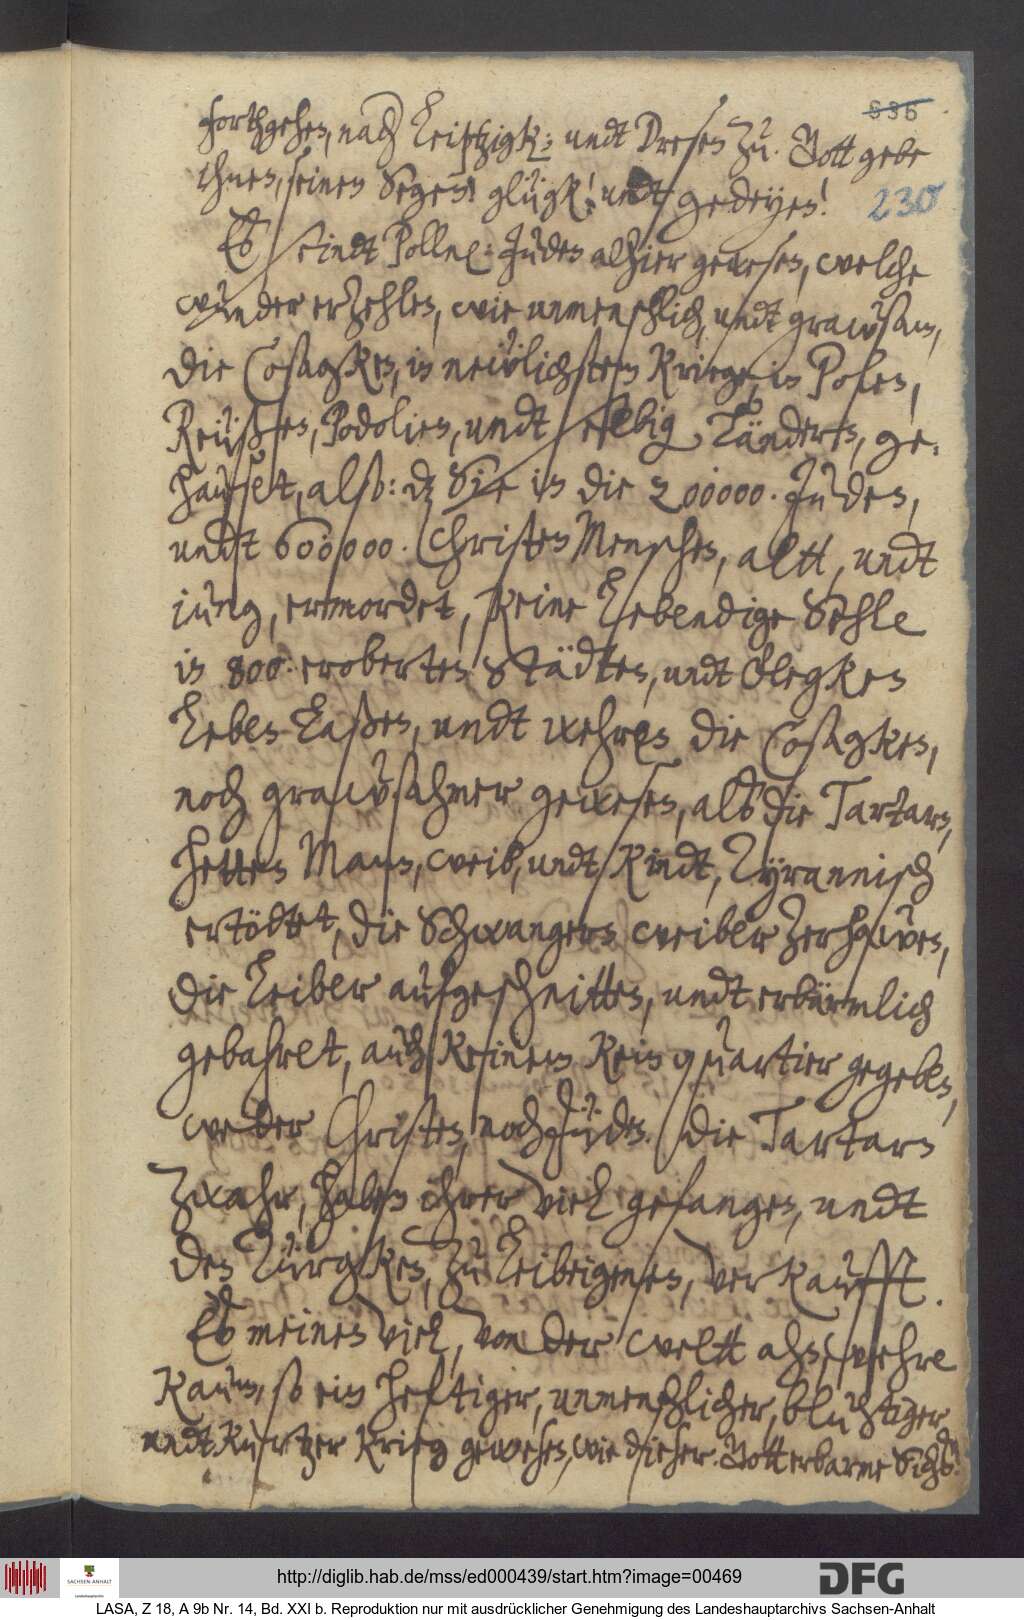 636
forthgehen, nach Leiptzigk: undt Dresen zu. Gott gebe
ihnen, seinen Segen! glügk! undt gedeyen!
230
Es seindt Polln: Juden alhier gewesen, welche
wunder erzehlen, wie unmenschlich, undt grawsam,
die Cosagken, in neẅlichstem Kriege, in Polen,
Reüßen, Podolien, undt selbig Ländern, ge-
hauset, also: dz Sie in die 200000. Juden,
undt 600000. Christen Menschen, altt, undt
jung, ermordet, keine Lebendige Sehle
in 800. eroberten Städten, undt Flegken
Leben Laßen, undt wehren die Cosagken,
noch grawsahmer gewesen, alß die Tartarn,
hetten Mann, weib, undt Kindt, Tyrannisch
ertödtet, die Schwangern weiber zerhawen,
die Leiber aufgeschnitten, undt erbärmlich
gebahret, auch keinem kein quartier gegeben,
weder Christen, noch Juden. Die Tartarn
Zwahr, haben ihrer viel gefangen, undt
den Türgken, zu Leibeigenen, verkaufft.
Es meinen viel, von der weltt ahn, wehre
kaum, so ein heftiger, unmenschlicher, bluhtiger
undt kurtzer krieg gewesen, wie dieser. Gott erbarme Sichs.
http://diglib.hab.de/mss/ed000439/start.htm?image=00469
SACHSEN-ANHALT
DFG
LASA, Z 18, A 9b Nr. 14, Bd. XXI b. Reproduktion nur mit ausdrücklicher Genehmigung des Landeshauptarchivs Sachsen-Anhalt